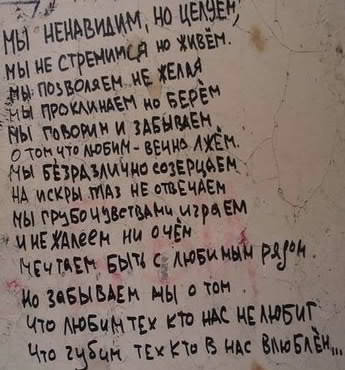 Мы ненавидим, но целуем,
Мы не стремимся но живём.
Мы позволяем не желая
Мы проклинаем но берём
Мы говорим и забываем
о том что любим - вечно лжём.
Мы безразлично созерцаем
на искры глаз не отвечаем
Мы грубо чувствами играем
и не жалеем ни о чём
Мечтаем быть с любимым рядом.
Но забываем мы о том
Что любим тех кто нас не любит
Что губим тех кто в нас влюблён...